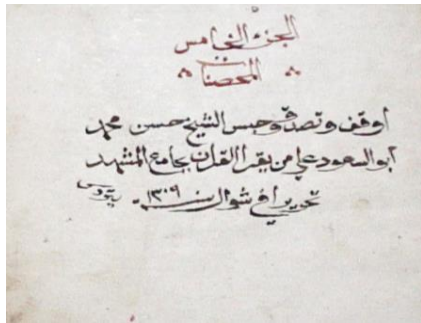 الجزء الخامس
المحصنات
اوقف وتصدق وحبس الشيخ حسن محمد
ابوالسعود علي من يقرا القران بجامع المشهد
تحريرا في شوال سنة ١٣٠٩